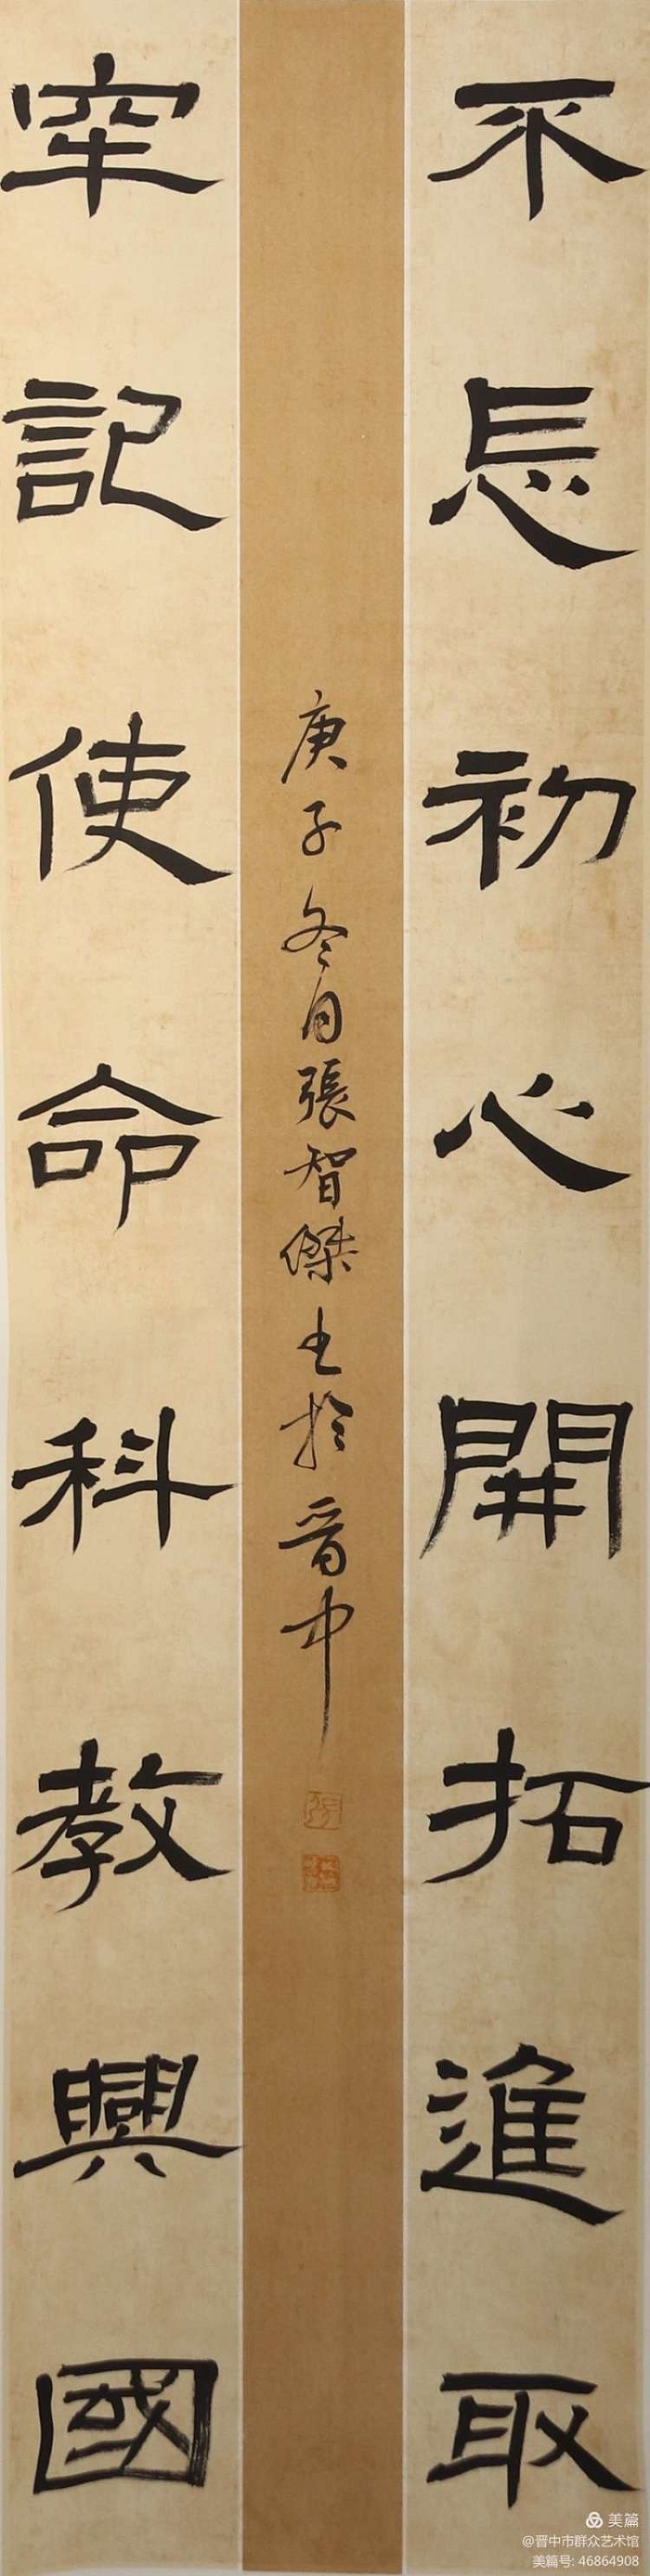 不忘初心開拓進取
牢記使命科教興國
庚子冬月張智傑书於晋中
美篇
@晋中市群众艺术馆
美篇号: 46864908